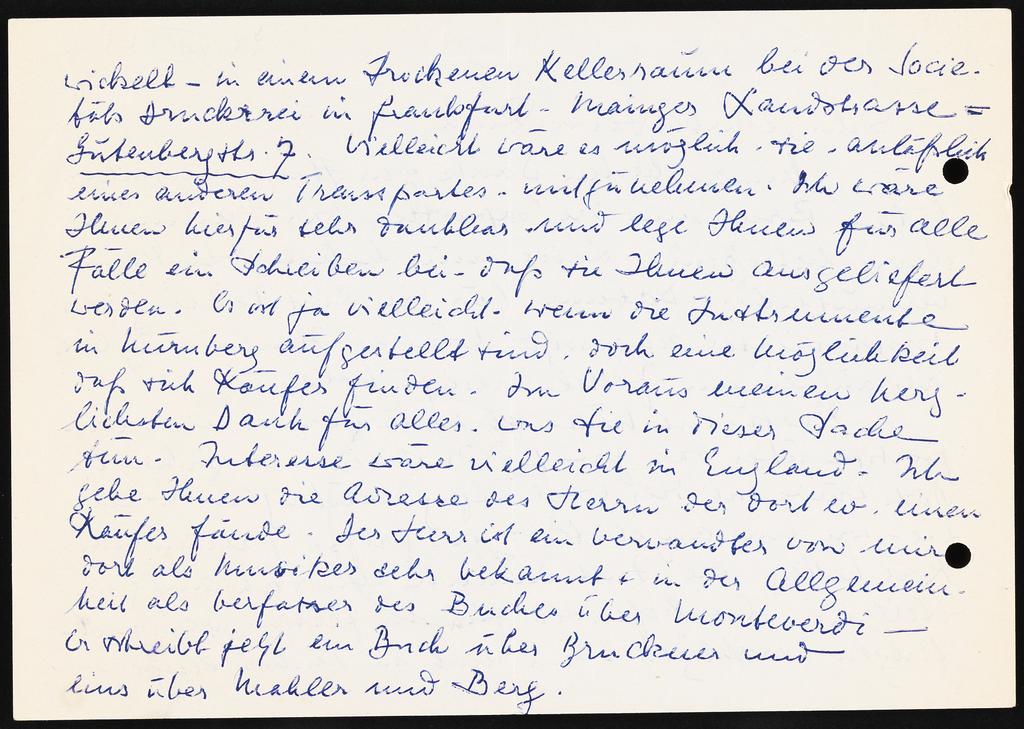 wickelt – in einem trockenen Kellerraum bei der Socie-
täts Druckerei in Frankfurt – Mainzer Landstrasse =
Gutenbergstr. 7. Vielleicht wäre es möglich – sie – anläßlich
eines anderen Transportes – mitzunehmen. Ich wäre
Ihnen hierfür sehr dankbar und lege Ihnen für alle
Fälle ein Schreiben bei – daß sie Ihnen ausgeliefert
werden. Es ist ja vielleicht – wenn die Instrumente
in Nürnberg aufgestellt sind, doch eine Möglichkeit
daß sich Käufer finden. Im Voraus meinen herz-
lichsten Dank für alles, was Sie in dieser Sache
tun. Interesse wäre vielleicht in England – Ich
gebe Ihnen die Adresse des Herrn der dort ev. einen
Käufer fände. Der Herr ist ein Verwandter von mir
dort als Musiker sehr bekannt + in der Allgemein-
heit als Verfasser des Buches über Monteverdi –
Er schreibt jetzt ein Buch über Bruckner und
eins über Mahler und Berg.